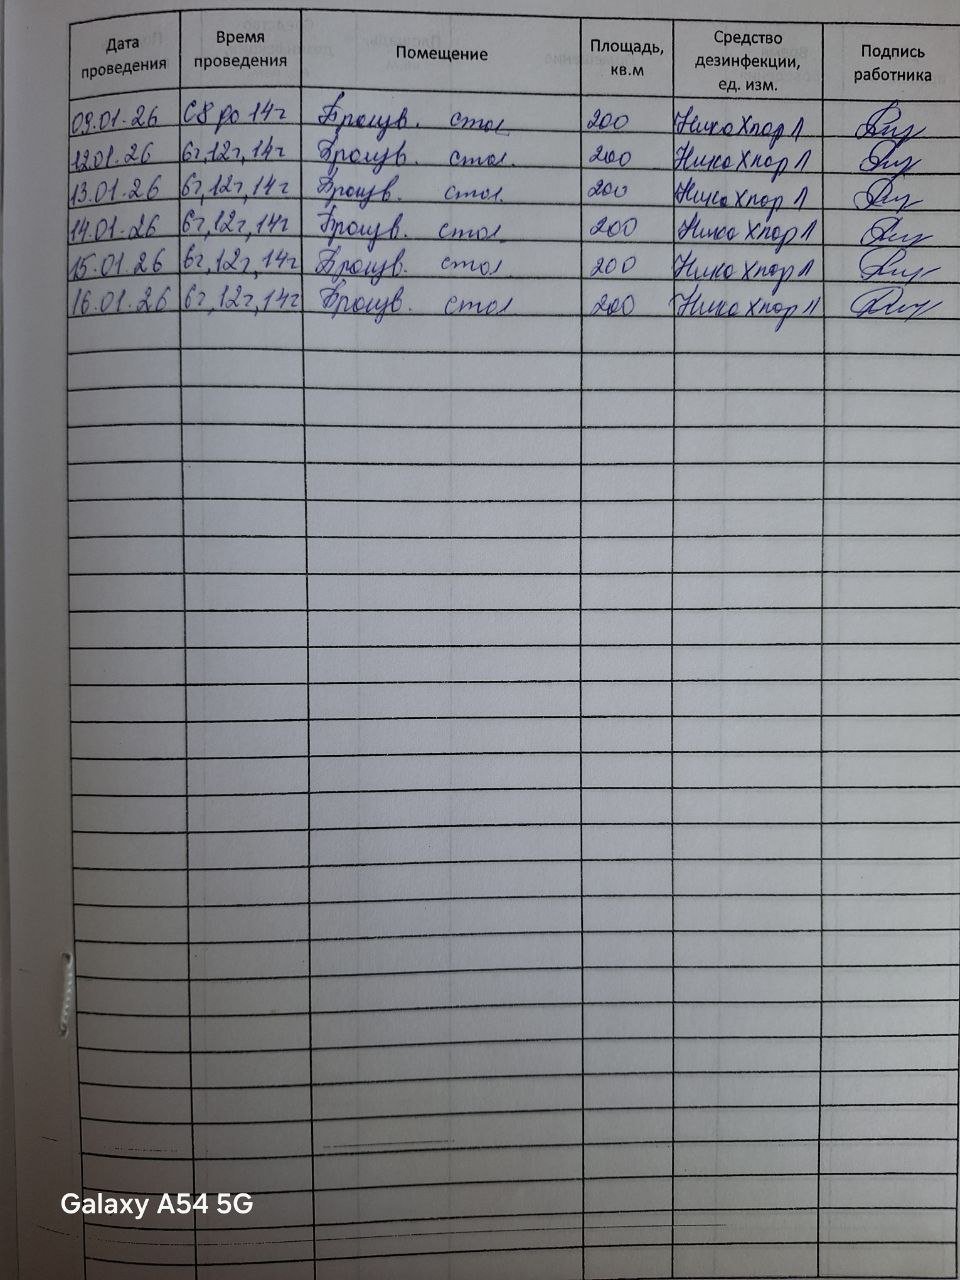 Дата проведения | Время проведения | Помещение | Площадь, кв.м | Средство дезинфекции, ед. изм. | Подпись работника
09.01.26 | С 8 до 14ч | стол | 200 | Ника Хлор Л
12.01.26 | 6ч, 12ч, 14ч | стол. | 200 | Ника Хлор Л
13.01.26 | 6ч, 12ч, 14ч | стол. | 200 | Ника Хлор Л
14.01.26 | 6ч, 12ч, 14ч | стол. | 200 | Ника Хлор Л
15.01.26 | 6ч, 12ч, 14ч | стол | 200 | Ника Хлор Л
16.01.26 | 6ч, 12ч, 14ч | стол | 200 | Ника Хлор Л
Galaxy A54 5G